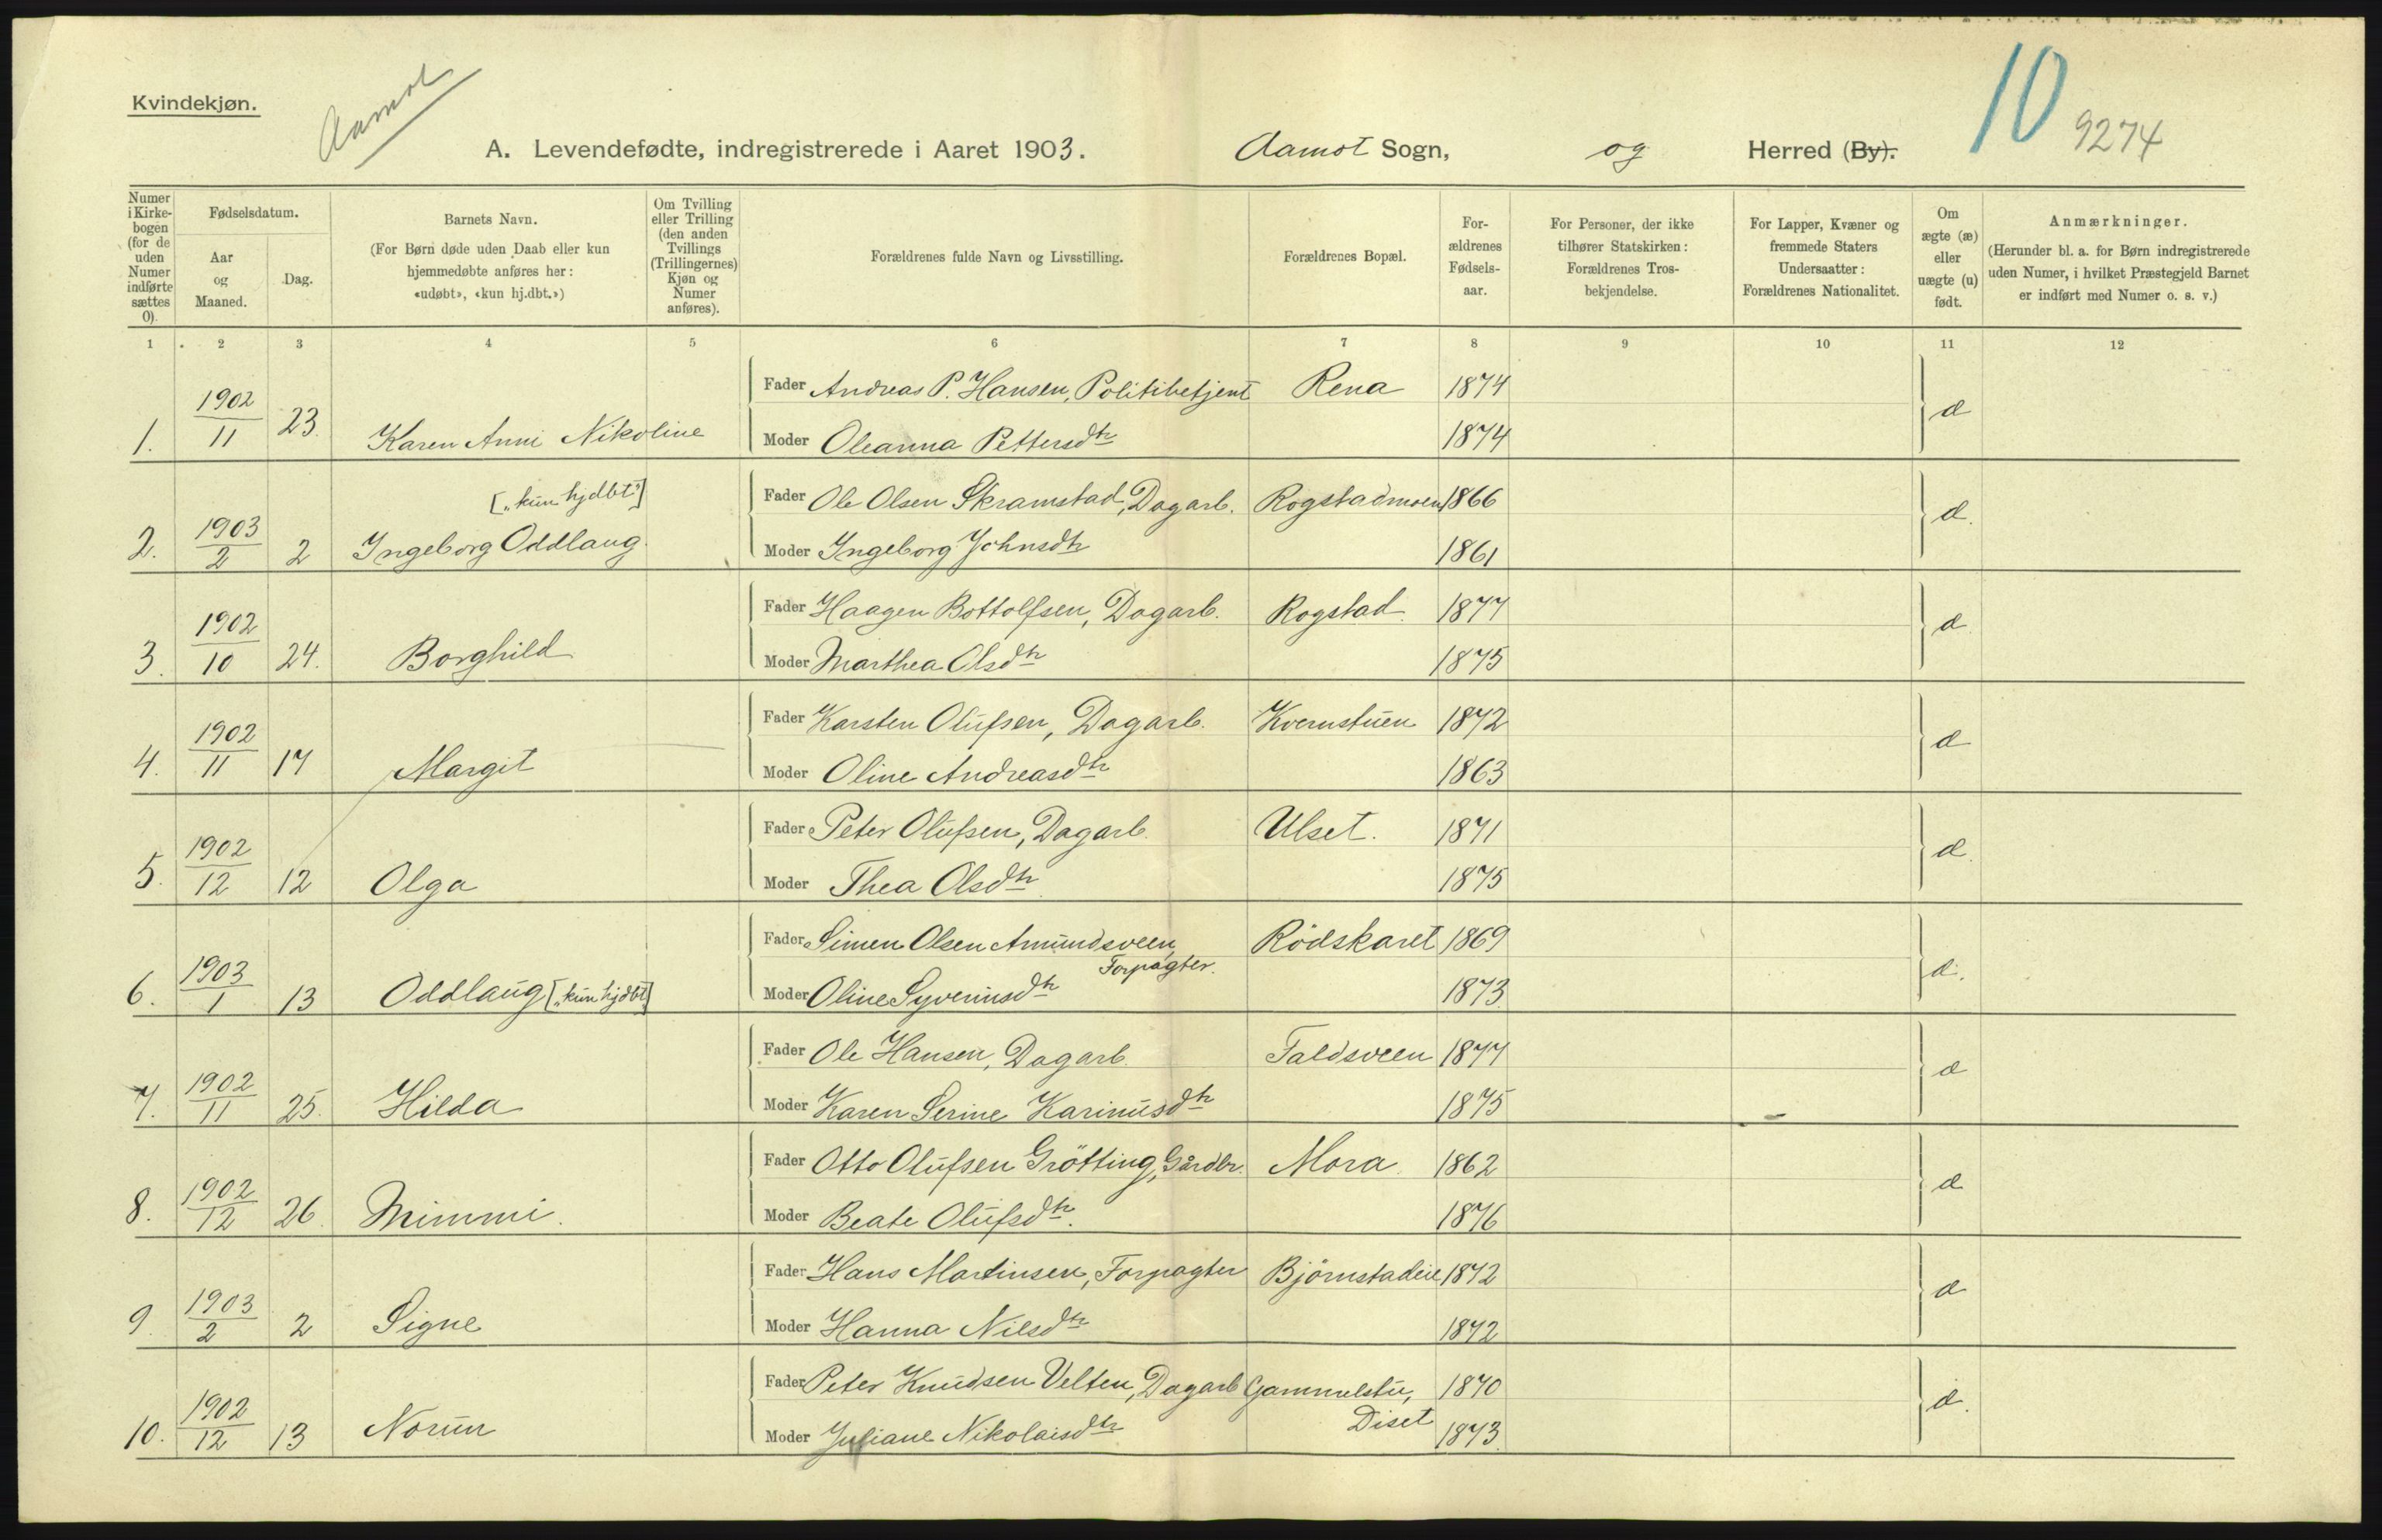 Kvindekjøn.
Aamot
10
9274
A. Levendefødte, indregistrerede i Aaret 1903. Aamot Sogn, og Herred (By).
Numer i Kirkebogen (for de uden Numer indførte sættes 0).
Fødselsdatum.
Aar og Maaned.
Dag.
Barnets Navn.
(For Børn døde uden Daab eller kun hjemmedøbte anføres her: «udøbt», «kun hj.dbt.»)
Om Tvilling eller Trilling (den anden Tvillings (Trillingernes) Kjøn og Numer anføres).
Forældrenes fulde Navn og Livsstilling.
Forældrenes Bopæl.
For-ældrenes Fødsels-aar.
For Personer, der ikke tilhører Statskirken: Forældrenes Tros-bekjendelse.
For Lapper, Kvæner og fremmede Staters Undersaatter: Forældrenes Nationalitet.
Om ægte (æ) eller uægte (u) født.
Anmærkninger.
(Herunder bl. a. for Børn indregistrerede uden Numer, i hvilket Præstegjeld Barnet er indført med Numer o. s. v.)
1 2 3 4 5 6 7 8 9 10 11 12
1. 1902/11 23. Karen Anni Nikoline
Fader Andreas P. Hansen, Politibetjent Rena 1874 æ
Moder Oleanna Pettersdtr 1874
2. 1903/2 2 Ingeborg Oddlaug. ["kun hjdbt"]
Fader Ole Olsen Skramstad, Dagarb. Rogstadmoen 1866 æ.
Moder Ingeborg Johnsdtr 1861
3. 1902/10 24. Borghild
Fader Haagen Bottolfsen, Dagarb. Rogstad. 1877 æ
Moder Marthea Olsdtr 1875
4. 1902/11 17 Margit
Fader Karsten Olufsen, Dagarb. Kvernstuen 1872 æ
Moder Oline Andreasdtr 1863
5. 1902/12 12 Olga
Fader Peter Olufsen, Dagarb. Ulset. 1871 æ
Moder Thea Olsdtr 1875
6. 1903/1 13 Oddlaug ["kun hjdbt"]
Fader Simen Olsen Amundsveen, Forpagter. Rödskaret 1869 æ.
Moder Oline Syverinsdtr 1873.
7. 1902/11 25. Hilda
Fader Ole Hansen, Dagarb. Faldsveen 1877 æ
Moder Karen Serine Karinusdtr 1875
8. 1902/12 26. Mimmi.
Fader Otto Olufsen Grötting, Gårdbr. Mora. 1862 æ
Moder Beate Olufsdtr. 1876
9. 1903/2 2 Signe
Fader Hans Martinsen, Forpagter Björnstadeie 1872 æ
Moder Hanna Nilsdtr 1872
10. 1902/12 13 Norun
Fader Peter Knudsen Velten, Dagarb Gammelstu, Diset 1870 æ.
Moder Juliane Nikolaisdtr 1873.